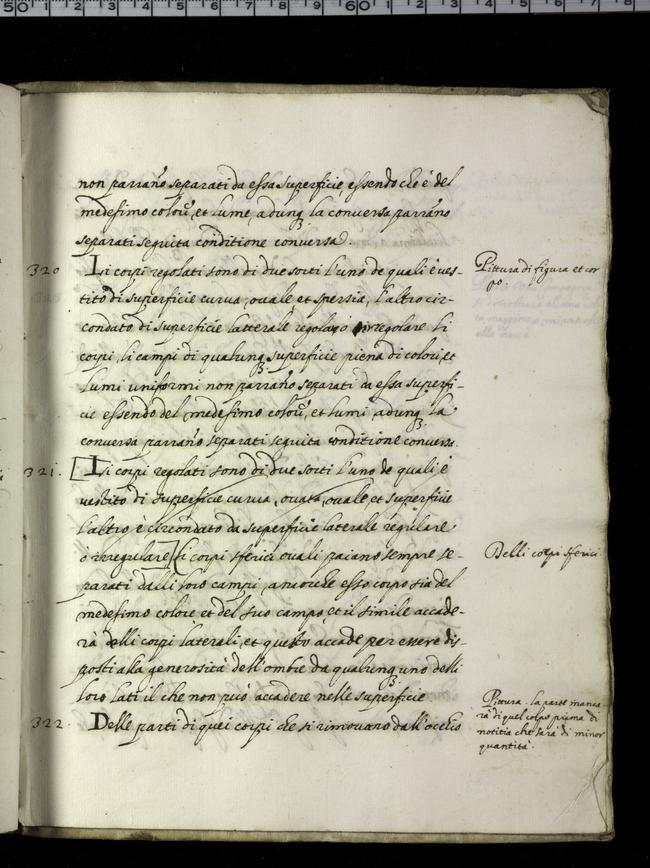 non parrano separati da essa superficie, essendo che è del
medesimo colour, et lume, adunq. la conversa parrano
separati seguita conditione conversa.
320 Li corpi regolati sono di due sorti l'uno de quali è ves-
tito di superficie curva, ovale et spersia, l'altro cir-
condato di superficie latterale regolare o irregolare li
corpi, li campi di qualunq. superficie piena di colori, et
lumi uniformi non parrano separati da essa superfi-
cie essendo del medesimo colour, et lumi, adunq. la
conversa parrano separati seguita conditione conversa.
321. [Li corpi regolati sono di due sorti l'uno de quali è
vestito di superficie curva, ovata, ovale et superficie
l'altro è circondato da superficie laterale regulare
o irregulare] li corpi sferici ovali paiano sempre se-
parati dalli loro campi, ancorche esso corpo sia del
medesimo colore et del suo campo, et il simile accade-
rà delli corpi laterali, et questo accade per essere dis-
posti alla generosità dell'ombre da qualunq. uno delli
loro lati il che non può accadere nelle superficie
322. Delle parti di quei corpi che si rimovano dall'occhio
Pittura di figura et cor
po.
Delli corpi sferici
Pittura. la parte manca-
rà di quel corpo prima di
notitia che sarà di minor
quantità.